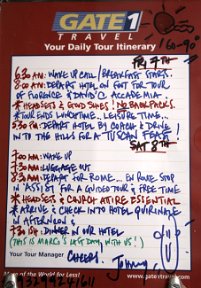 GATE 1
TRAVEL
Your Daily Tour Itinerary
FRI 7TH
60-90°
6:30 AM: WAKE UP CALL / BREAKFAST STARTS.
8:00 AM: DEPART HOTEL ON FOOT FOR TOUR
OF FLORENCE & DAVID @ ACCADEMIA
* HEADSETS & GOOD SHOES! NO BACKPACKS.
* TOUR ENDS LUNCHTIME. LEISURE TIME...
5:30 PM: DEPART HOTEL BY COACH & DRIVE
INTO THE HILLS FOR A "TUSCAN FEAST"
SAT 8TH
7:00 AM: WAKE UP
AM: LUGGAGE OUT
AM: DEPART FOR ROME... EN ROUTE STOP
IN ASSISI FOR A GUIDED TOUR & FREE TIME
* HEADSETS & CHURCH ATTIRE ESSENTIAL
* ARRIVE & CHECK INTO HOTEL QUIRINALE
IN AFTERNOON &
7:30 PM: DINNER IN OUR HOTEL
(THIS IS MARC'S LAST DAY WITH US!)
Your Tour Manager
CHEERS!
Johnny
More of the World for Less!
www.gate1travel.com